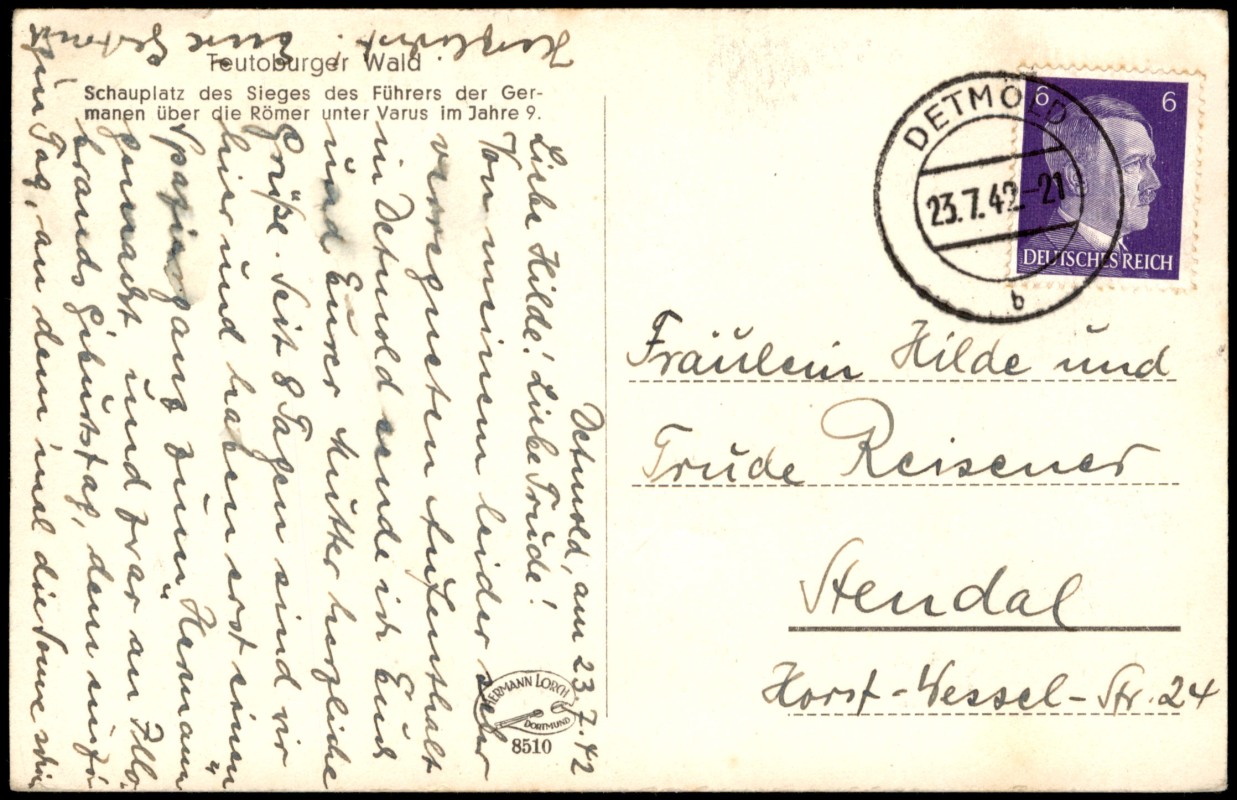 Teutoburger Wald
Schauplatz des Sieges des Führers der Ger-
manen über die Römer unter Varus im Jahre 9.
Detmold, am 23.7.42
Liebe Hilde! Liebe Trude!
Von meinem leider sehr
verregneten Aufenthalt
in Detmold sende ich Euch
und Eurer Mutter herzliche
Grüße. Seit 8 Tagen sind wir
hier und haben erst einen
Spaziergang zum „Hermann“
gemacht und zwar an
brands Geburtstag, dem
Tag, an dem mal die Sonne schien
Herzlichst. Eure Gertrud
HERMANN LORCH
DORTMUND
8510
DETMOLD
23.7.42.-21
b
6 6
DEUTSCHES REICH
Fräulein Hilde und
Trude Reisener
Stendal
Horst-Wessel-Str. 24